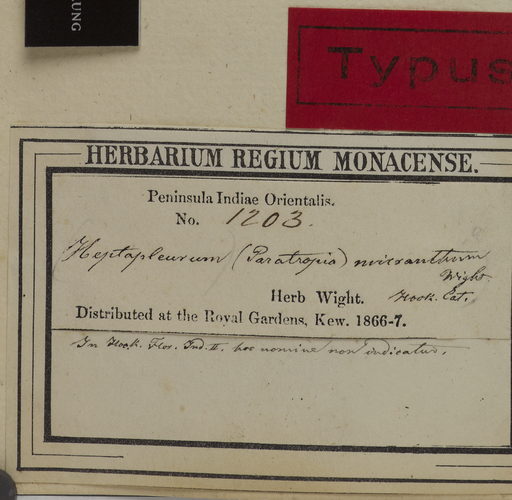 UNG
Typus
HERBARIUM REGIUM MONACENSE.
Peninsula Indiae Orientalis.
No. 1203.
Heptapleurum (Paratropia) micranthum
Wight
Herb Wight. Hook. Cat.
Distributed at the Royal Gardens, Kew. 1866-7.
In Hook. Flor. Ind. II. hoc nomine non indicatur.